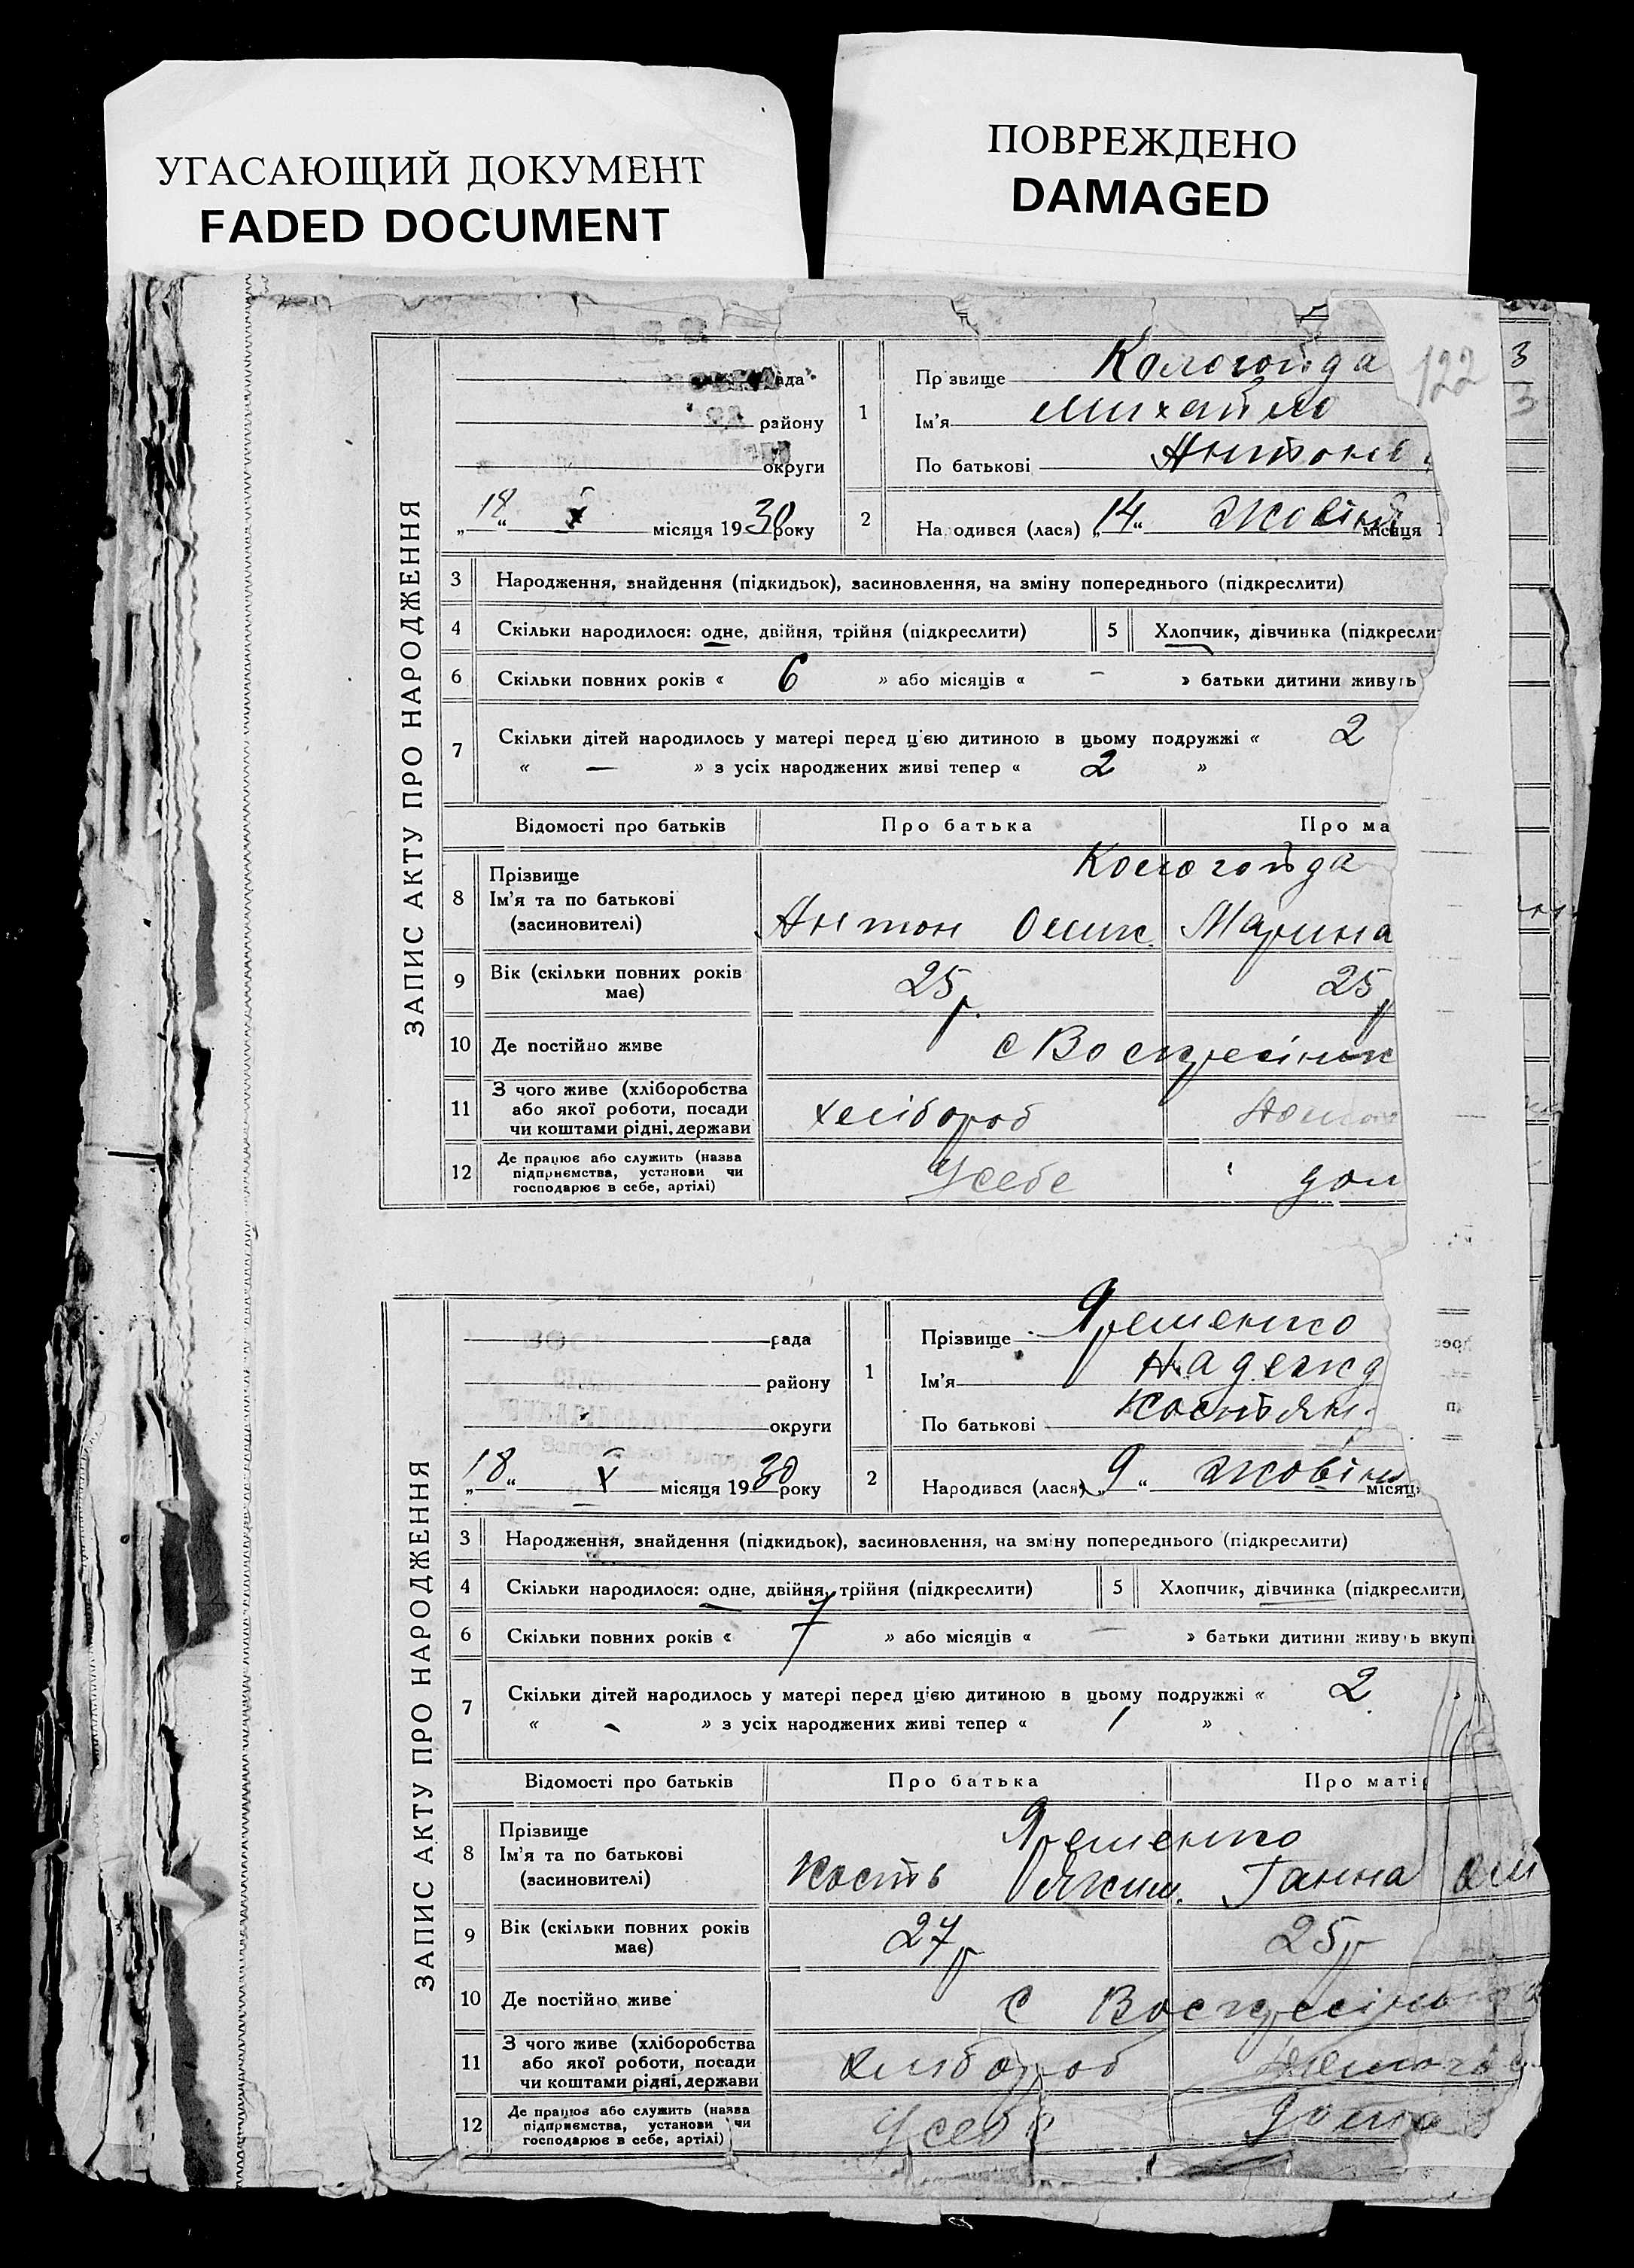 УГАСАЮЩИЙ ДОКУМЕНТ
FADED DOCUMENT
ПОВРЕЖДЕНО
DAMAGED
122
3
3
ЗАПИС АКТУ ПРО НАРОДЖЕННЯ
рада
району
округи
„18“ X місяця 1930 року
1
Прзвище Кологойда
Ім'я Михайло
По батькові Антонів
2 На одився (лася) „14“ Жовтн місяця
3 Народження, знайдення (підкидьок), засиновлення, на зміну попереднього (підкреслити)
4 Скільки народилося: одне, двійня, трійня (підкреслити) 5 Хлопчик, дівчинка (підкресли
6 Скільки повних років « 6 » або місяців « – » батьки дитини живуть
7 Скільки дітей народилось у матері перед цією дитиною в цьому подружжі « 2
« — » з усіх народжених живі тепер « 2 »
Відомості про батьків Про батька Про ма
8 Прізвище
Ім'я та по батькові
(засновителі)
Кологойда
Антон Марина
9 Вік (скільки повних років має) 25 р. 25 р
10 Де постійно живе с Воскресінк
11 З чого живе (хліборобства або якої роботи, посади чи коштами рідні, держави хлібороб
12 Де працює або служить (назва підприємства, установи чи господарює в себе, артілі) У себе дом
ЗАПИС АКТУ ПРО НАРОДЖЕННЯ
рада
району
округи
„18“ X місяця 1930 року
1
Прізвище Яременко
Ім'я Надежд
По батькові Костян
2 Народився (лася) „9“ Жовтн місяц
3 Народження, знайдення (підкидьок), засиновлення, на зміну попереднього (підкреслити)
4 Скільки народилося: одне, двійня, трійня (підкреслити) 5 Хлопчик, дівчинка (підкреслити
6 Скільки повних років « 7 » або місяців « – » батьки дитини живуть вкупі
7 Скільки дітей народилось у матері перед цією дитиною в цьому подружжі « 2
« - » з усіх народжених живі тепер « 1 »
Відомості про батьків Про батька Про матір
8 Прізвище
Ім'я та по батькові
(засиновителі)
Яременко
Кость Яким. Ганна
9 Вік (скільки повних років має) 27 р 25 р
10 Де постійно живе с Воскресінка
11 З чого живе (хліборобства або якої роботи, посади чи коштами рідні, держави хлібороб
12 Де працює або служить (назва підприємства, установи чи господарює в себе, артілі) У себе дома